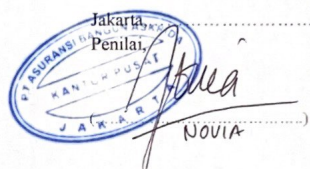 Jakarta, ..............
Penilai,
PT. ASURANSI BANGUN ASKRIDA
KANTOR PUSAT
JAKARTA
(..............................)
NOVIA